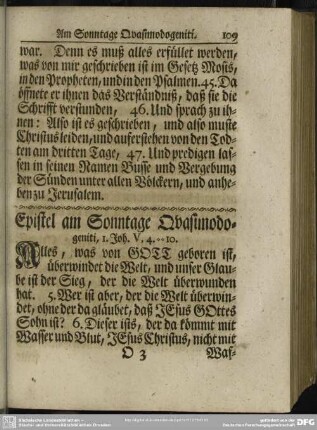 Am Sonntage Qvasimodogeniti. 109
war. Denn es muß alles erfüllet werden,
was von mir geschrieben ist im Gesetz Mosis,
in den Propheten, und in den Psalmen. 45. Da
öffnete er ihnen das Verständniß, daß sie die
Schrifft verstunden, 46. Und sprach zu ih-
nen: Also ist es geschrieben, und also muste
Christus leiden, und auferstehen von den Tod-
ten am dritten Tage, 47. Und predigen las-
sen in seinen Namen Busse und Vergebung
der Sünden unter allen Völckern, und anhe-
ben zu Jerusalem.
Epistel am Sonntage Qvasimodo-
geniti, 1. Joh. V, 4.--10.
Alles, was von GOTT geboren ist,
überwindet die Welt, und unser Glau-
be ist der Sieg, der die Welt überwunden
hat. 5. Wer ist aber, der die Welt überwin-
det, ohne der da gläubet, daß JEsus GOttes
Sohn ist? 6. Dieser ists, der da kömmt mit
Wasser und Blut, JEsus Christus, nicht mit
O 3 Was-